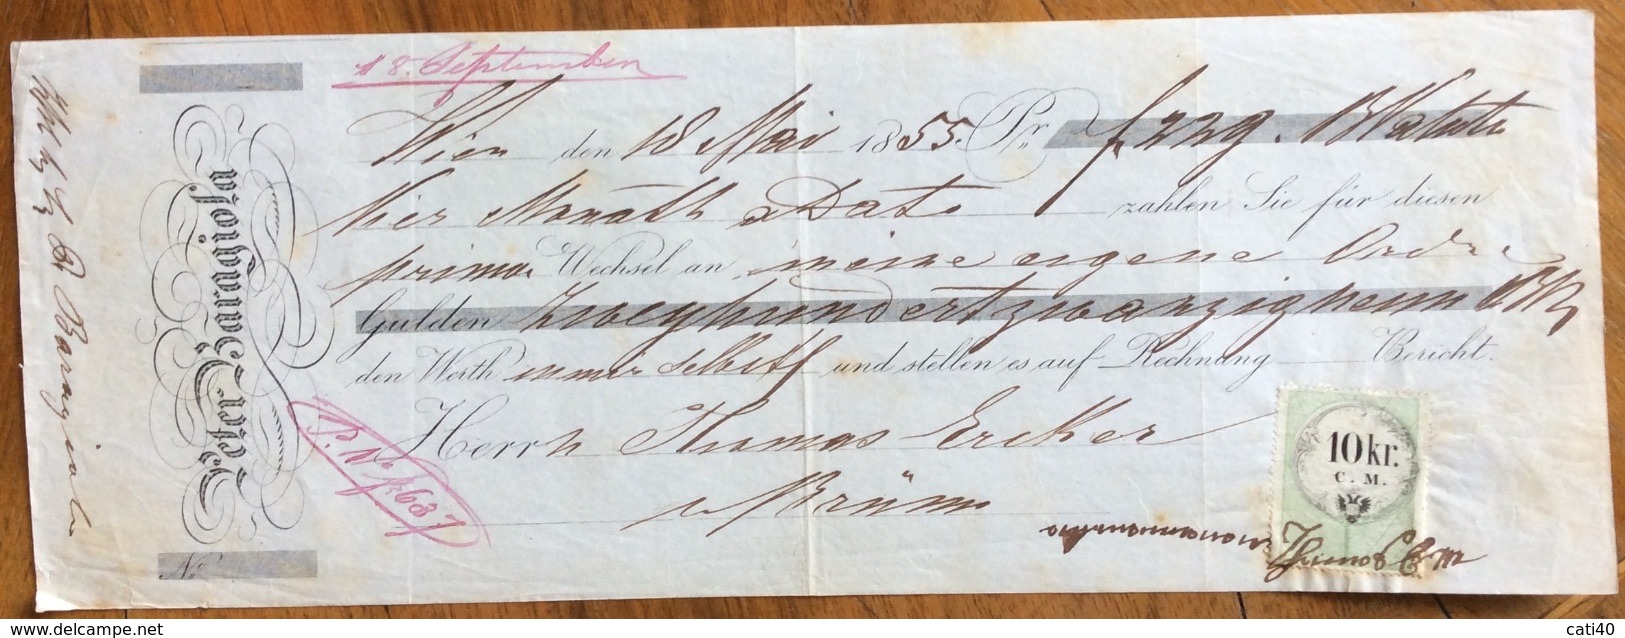 18. September
Wien den 18 Mai 1855. Pr. f 229. BValuta
Vier Monath a Dato zahlen Sie für diesen
prima Wechsel an meine eigene Ordre
Gulden Zweyhundertzwanzigneun BV
den Werth in mir selbst und stellen es auf Rechnung Bericht.
Herrn Thomas Ercker
Brünn
Peter Baragiola
P. No 7637
No
10 kr.
C. M.
Baragiola
cati40